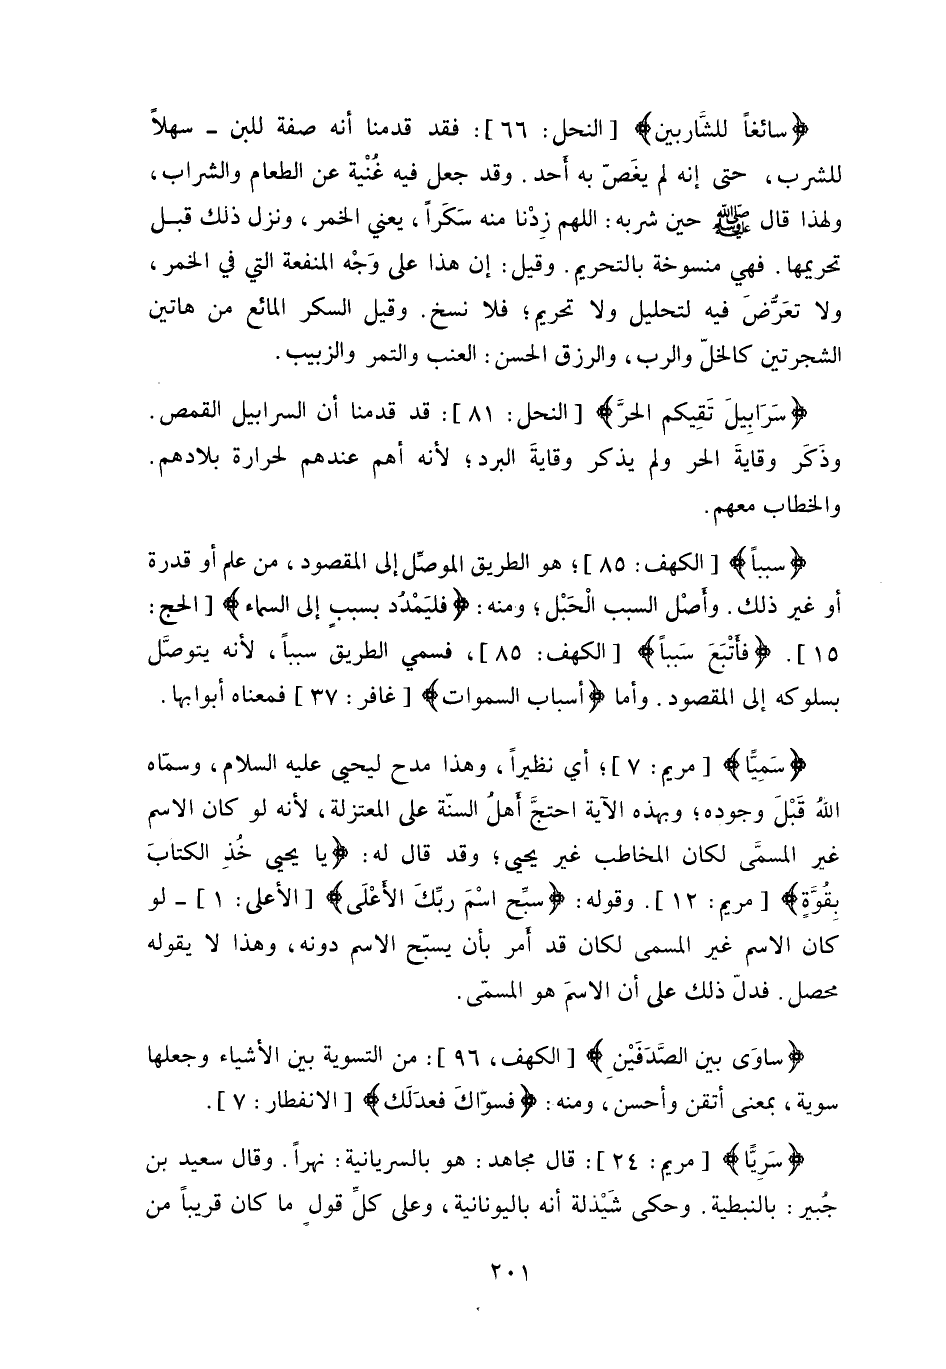 ﴿سائغاً للشَّاربين﴾ [ النحل: ٦٦ ]: فقد قدمنا أنه صفة للبن ـ سهلاً
للشرب، حتى إنه لم يغَصّ به أَحد. وقد جعل فيه غُنْية عن الطعام والشراب،
ولهذا قال ﷺ حين شربه: اللهم زِدْنا منه سَكَراً، يعني الخمر، ونزل ذلك قبل
تحريمها. فهي منسوخة بالتحريم. وقيل: إن هذا على وَجْه المنفعة التي في الخمر،
ولا تعَرُّضَ فيه لتحليل ولا تحريم؛ فلا نسخ. وقيل السكر المائع من هاتين
الشجرتين كالخلّ والرب، والرزق الحسن: العنب والتمر والزبيب.
﴿سَرَابِيلَ تَقِيكم الحَرَّ﴾ [ النحل: ٨١ ]: قد قدمنا أن السرابيل القمص.
وذَكَر وقايةَ الحر ولم يذكر وقايةَ البرد؛ لأنه أهم عندهم لحرارة بلادهم.
والخطاب معهم.
﴿سبباً﴾ [ الكهف: ٨٥ ]؛ هو الطريق الموصِّل إلى المقصود، من علم أو قدرة
أو غير ذلك. وأَصْل السبب الْحَبْل؛ ومنه: ﴿فليَمْدُد بسببٍ إلى السماء﴾ [ الحج:
١٥ ]. ﴿فأَتْبَعَ سَبباً﴾ [ الكهف: ٨٥ ]، فسمي الطريق سبباً، لأنه يتوصَّل
بسلوكه إلى المقصود. وأما ﴿أسباب السموات﴾ [ غافر: ٣٧ ] فمعناه أبوابها.
﴿سَمِيًّا﴾ [ مريم: ٧ ]؛ أي نظيراً، وهذا مدح ليحيى عليه السلام، وسمّاه
اللهُ قَبْلَ وجوده؛ وبهذه الآية احتجَّ أَهلُ السنّة على المعتزلة، لأنه لو كان الاسم
غير المسمَّى لكان المخاطب غير يحيى؛ وقد قال له: ﴿يا يحيى خُذِ الكتابَ
بِقُوَّةٍ﴾ [ مريم: ١٢ ]. وقوله: ﴿سبِّح اسْمَ ربِّكَ الأَعْلَى﴾ [ الأعلى: ١ ] ـ لو
كان الاسم غير المسمى لكان قد أَمر بأن يسبّح الاسم دونه، وهذا لا يقوله
محصل. فدلّ ذلك على أن الاسمَ هو المسمّى.
﴿ساوَى بين الصَّدَفَيْنِ﴾ [ الكهف، ٩٦ ]: من التسوية بين الأشياء وجعلها
سوية، بمعنى أتقن وأحسن، ومنه: ﴿فسوّاكَ فعدَلَك﴾ [ الانفطار: ٧ ].
﴿سَرِيًّا﴾ [ مريم: ٢٤ ]: قال مجاهد: هو بالسريانية: نهراً. وقال سعيد بن
جُبير: بالنبطية. وحكى شَيْذلة أنه باليونانية، وعلى كلِّ قولٍ ما كان قريباً من
٢٠١